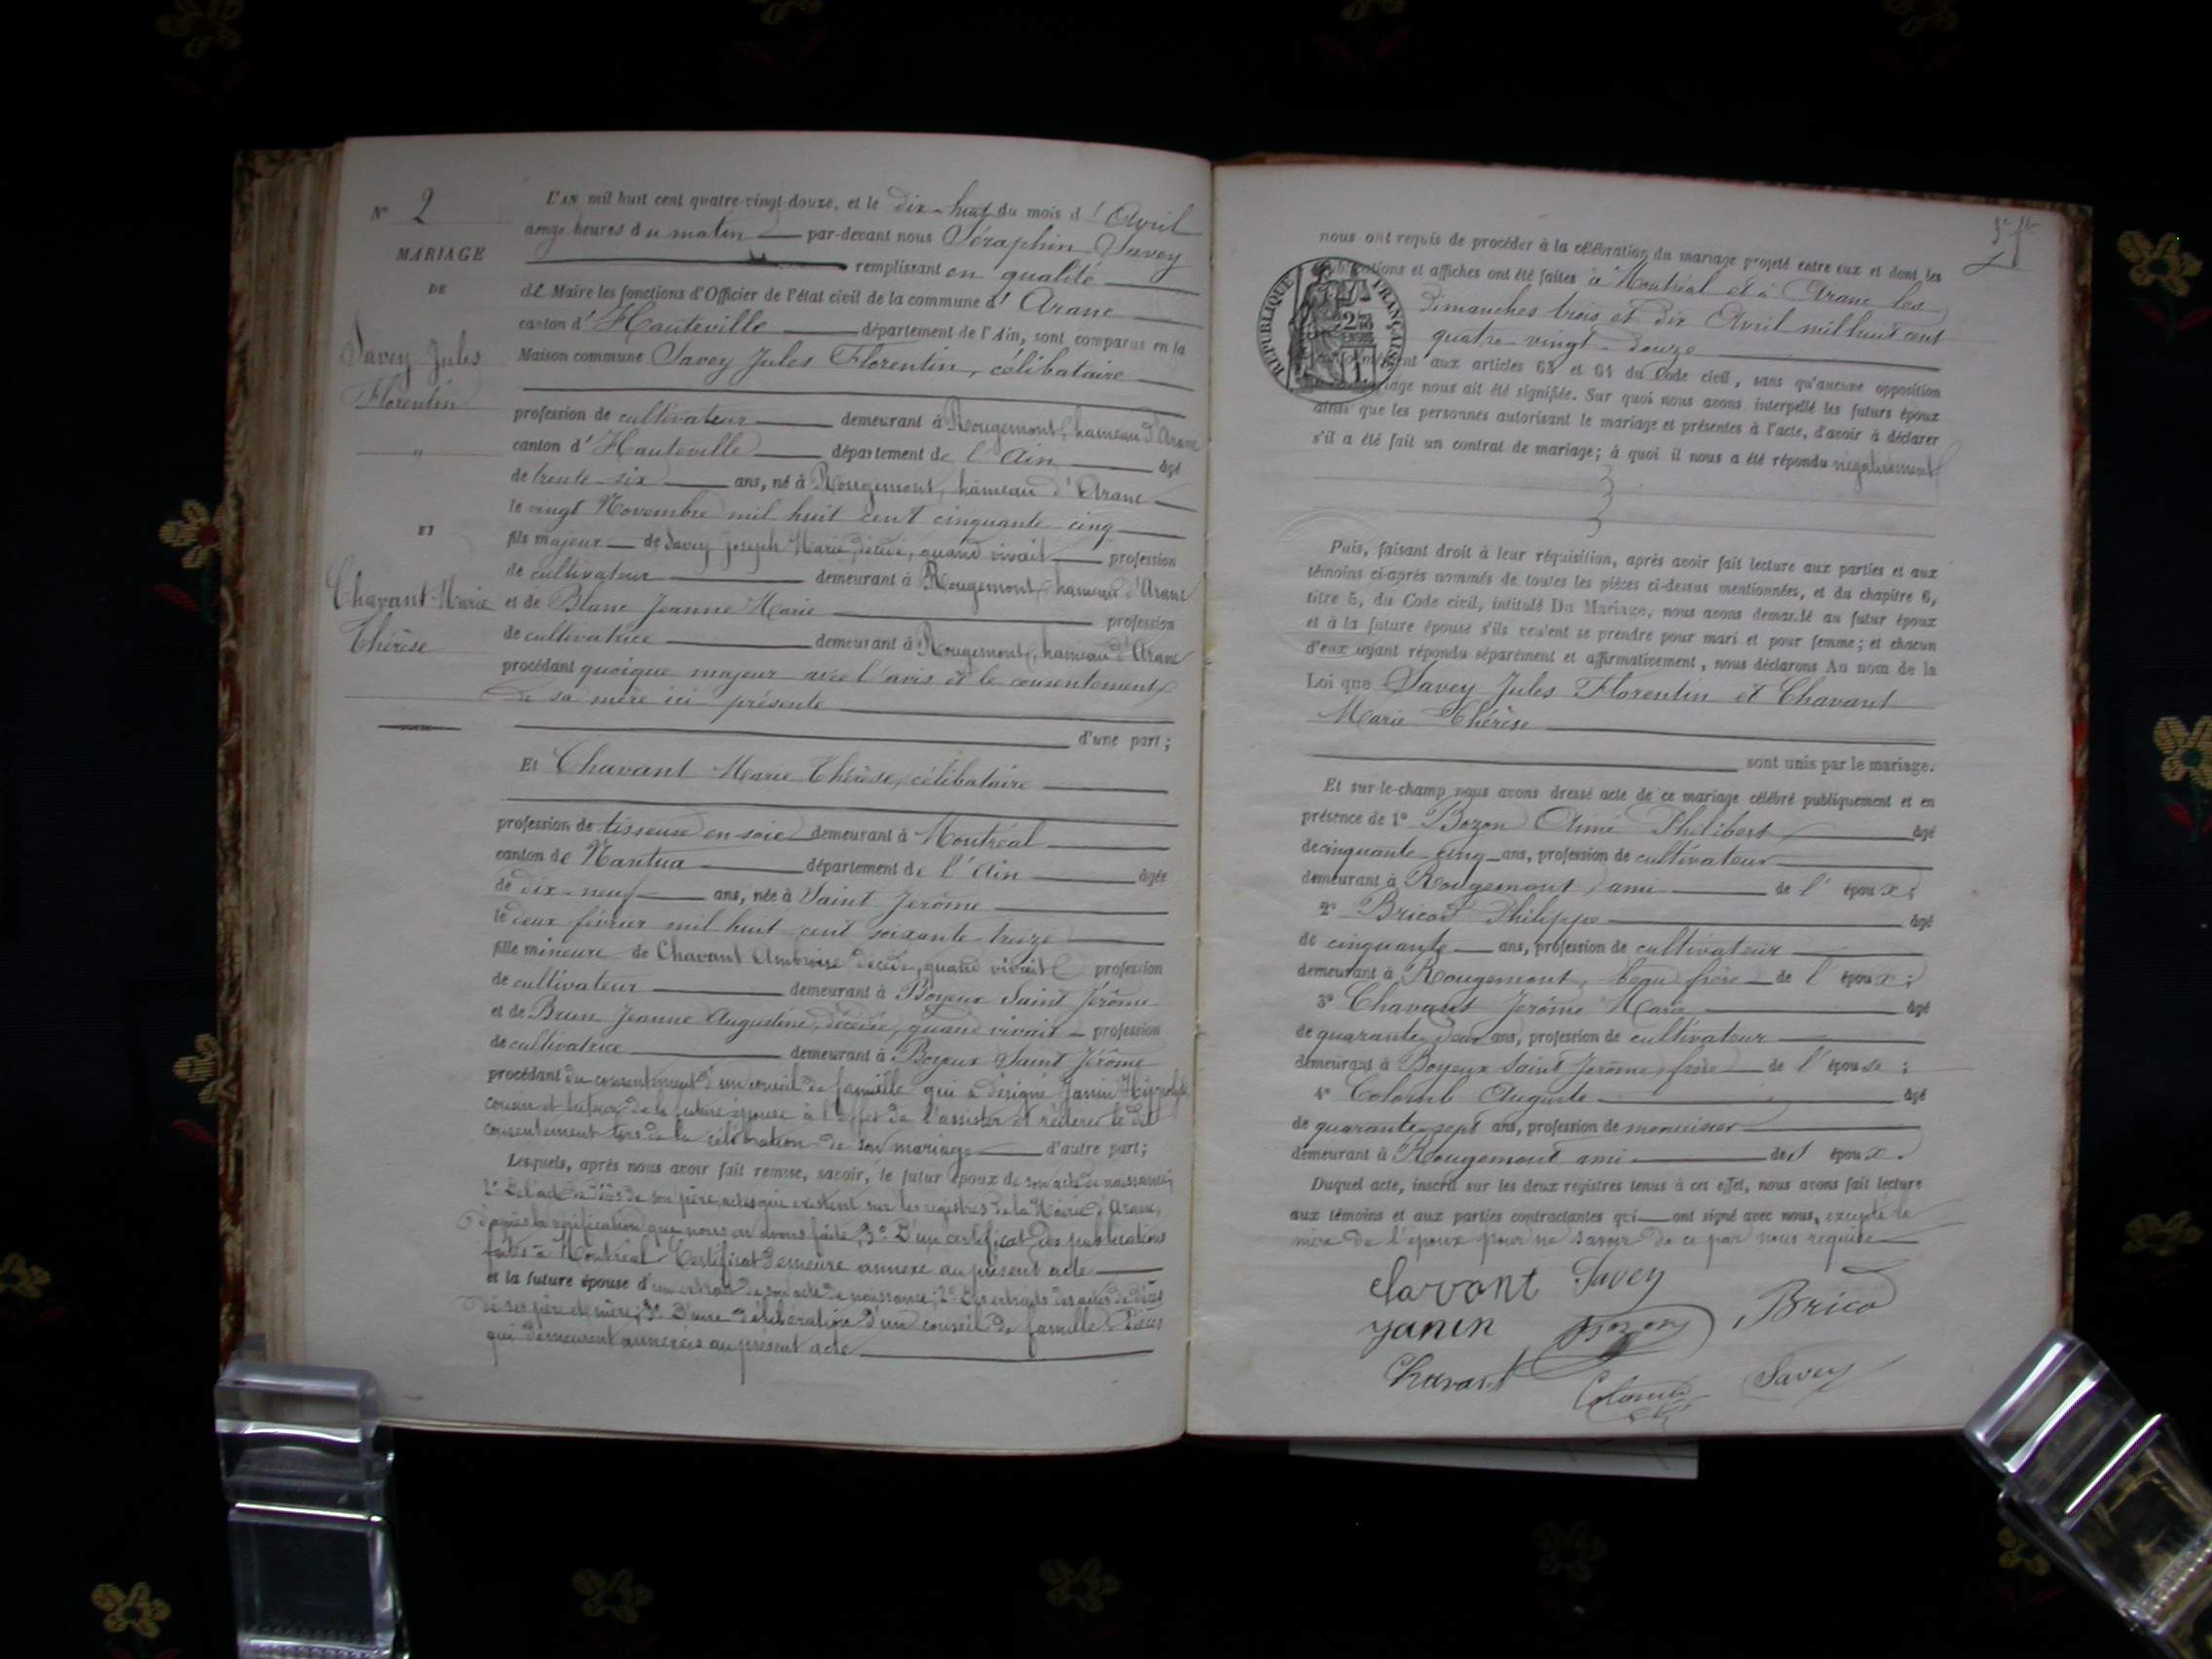 N° 2
MARIAGE
DE
Savey Jules
Florentin
"
ET
Chavant Marie
Thérèse
L'AN mil huit cent quatre-vingt-douze, et le dix-huit du mois d'Avril
à onze heures du matin par-devant nous Séraphin Savey
remplissant en qualité
de Maire les fonctions d'Officier de l'état civil de la commune d'Aranc
canton d'Hauteville département de l'Ain, sont comparus en la
Maison commune Savey Jules Florentin, célibataire
profession de cultivateur demeurant à Rougemont, hameau d'Aranc
canton d'Hauteville département de l'Ain âgé
de trente-six ans, né à Rougemont, hameau d'Aranc
le vingt Novembre mil huit cent cinquante cinq
fils majeur de Savey Joseph Marie, décédé, quand vivait profession
de cultivateur demeurant à Rougemont hameau d'Aranc
et de Blanc Jeanne Marie profession
de cultivatrice demeurant à Rougemont, hameau d'Aranc
procédant quoique majeur avec l'avis et le consentement
de sa mère ici présente
d'une part;
Et Chavant Marie Thérèse, célibataire
profession de tisseuse en soie demeurant à Montréal
canton de Nantua département de l'Ain âgée
de dix-neuf ans, née à Saint Jérôme
le deux février mil huit cent soixante-treize
fille mineure de Chavant Ambroise décédé, quand vivait profession
de cultivateur demeurant à Boyeux Saint Jérôme
et de Brun Jeanne Augustine, décédée, quand vivait profession
de cultivatrice demeurant à Boyeux Saint Jérôme
procédant du consentement d'un conseil de famille qui a désigné Janin Hippolyte
cousin et tuteur de la future épouse à l'effet de l'assister et réitérer le dit
consentement lors de la célébration de son mariage d'autre part;
Lesquels, après nous avoir fait remise, savoir, le futur époux de son acte de naissance;
2° de l'acte de décès de son père, actes qui existent sur les registres de la Mairie d'Aranc,
d'après la vérification que nous en avons faite; 3° D'un certificat des publications
faites à Montréal Certificat demeure annexé au présent acte
et la future épouse d'un extrait de son acte de naissance; 2° Des extraits des actes de décès
de ses père et mère; 3° D'une délibération d'un conseil de famille Pièces
qui demeurent annexées au présent acte
nous ont requis de procéder à la célébration du mariage projeté entre eux et dont les
publications et affiches ont été faites à Montréal et à Aranc les
dimanches trois et dix Avril mil huit cent
quatre-vingt-douze
conformément aux articles 63 et 64 du Code civil, sans qu'aucune opposition
mariage nous ait été signifiée. Sur quoi nous avons interpellé les futurs époux
ainsi que les personnes autorisant le mariage et présentes à l'acte, d'avoir à déclarer
s'il a été fait un contrat de mariage; à quoi il nous a été répondu négativement
RÉPUBLIQUE FRANÇAISE
Puis, faisant droit à leur réquisition, après avoir fait lecture aux parties et aux
témoins ci-après nommés de toutes les pièces ci-dessus mentionnées, et du chapitre 6,
titre 5, du Code civil, intitulé Du Mariage, nous avons demandé au futur époux
et à la future épouse s'ils veulent se prendre pour mari et pour femme; et chacun
d'eux ayant répondu séparément et affirmativement, nous déclarons Au nom de la
Loi que Savey Jules Florentin et Chavant
Marie Thérèse
sont unis par le mariage.
Et sur-le-champ nous avons dressé acte de ce mariage célébré publiquement et en
présence de 1° Bozon Aimé Philibert âgé
de cinquante-cinq ans, profession de cultivateur
demeurant à Rougemont, ami de l'époux;
2° Bricod Philippe âgé
de cinquante ans, profession de cultivateur
demeurant à Rougemont, beau frère de l'époux;
3° Chavant Jérôme Marie âgé
de quarante-deux ans, profession de cultivateur
demeurant à Boyeux Saint Jérôme, frère de l'épouse;
4° Colomb Auguste âgé
de quarante-sept ans, profession de menuisier
demeurant à Rougemont ami de l'époux.
Duquel acte, inscrit sur les deux registres tenus à cet effet, nous avons fait lecture
aux témoins et aux parties contractantes qui ont signé avec nous, excepté la
mère de l'époux pour ne savoir de ce par nous requise
Clavant Savey
Janin Bozon Brico
Chavant Colomb Savey